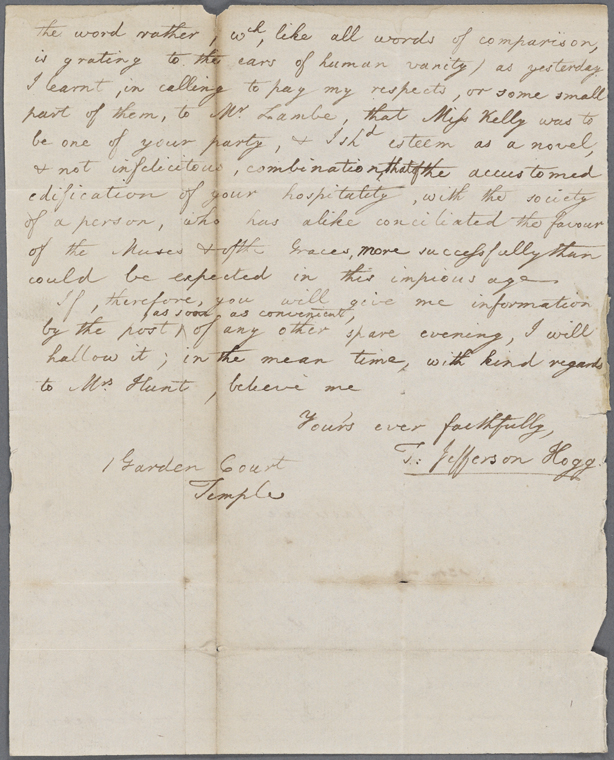 the word rather, wch, like all words of comparison,
is grating to the ears of human vanity) as yesterday
I learnt, in calling to pay my respects, or some small
part of them, to Mr Lambe, that Miss Kelly was to
be one of your party, & I shd esteem as a novel,
& not infelicitous, combination, that of the accustomed
edification of your hospitality, with the society
of a person, who has alike conciliated the favour
of the Muses & of the Graces, more successfully than
could be expected in this impious age
If, therefore, you will give me information
as soon as convenient,
by the post, of any other spare evening, I will
hallow it; in the mean time, with kind regards
to Mrs Hunt, believe me
Your's ever faithfully,
T: Jefferson Hogg.
1 Garden Court
Temple